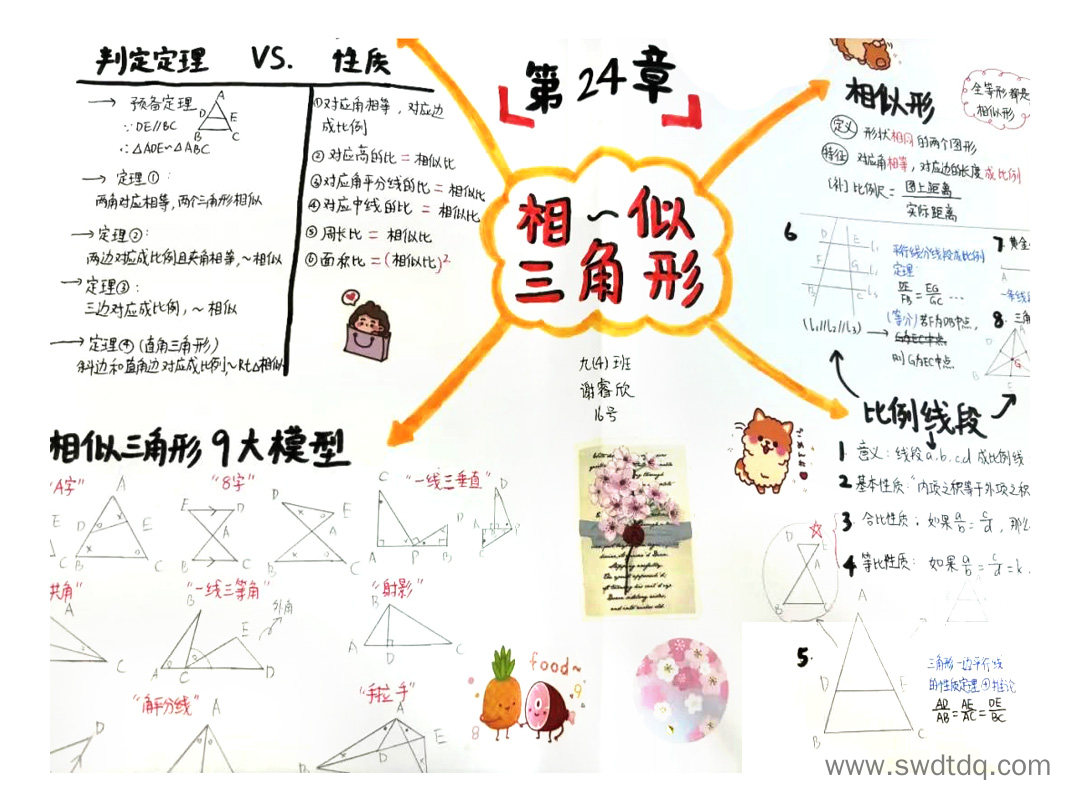 判定定理 VS. 性质
→ 预备定理
∵DE//BC
∴△ADE∽△ABC
A
D E
B C
→ 定理①:
两角对应相等,两个三角形相似
→定理②:
两边对应成比例且夹角相等,~相似
→定理③:
三边对应成比例,~相似
→定理④(直角三角形)
斜边和直角边对应成比例,~Rt△相似
①对应角相等,对应边
成比例
②对应高的比=相似比
③对应角平分线的比=相似比
④对应中线的比=相似比
⑤周长比=相似比
⑥面积比=(相似比)²
第24章
相~似
三角形
九(4)班
谢睿欣
16号
相似形
全等形都是
相似形
定义 形状相同的两个图形
特征 对应角相等,对应边的长度成比例
(补)比例尺=图上距离/实际距离
6
D E l₁
F G l₂
B C l₃
(l₁//l₂//l₃)
平行线分线段成比例
定理
DE/FB=EG/GC…
(等分)若F为DB中点,
G为EC中点
则G为EC中点
7.黄金
A
一条线段
8.三角
A
B
G
比例线段
1 意义:线段a.b.cd成比例线
2 基本性质:"内项之积等于外项之积
3.合比性质:如果a/b=c/d,那么
4 等比性质:如果a/b=c/d=k
D E
A
B
5.
A
D E
B C
三角形一边平行线
的性质定理④推论
AD/AB=AE/AC=DE/BC
相似三角形9大模型
"A字"
E
C
A
D E
B C
"8字"
E D
A
B C
D E
A
B C
"一线三垂直"
C
D
A P B
D
A B
C P
共角"
A
C
"一线三等角"
B
E
A C D
外角
"射影"
B
A
D C
"角平分线"
A
D
"手拉手"
A
E
food~
8
9
www.swdtdq.com